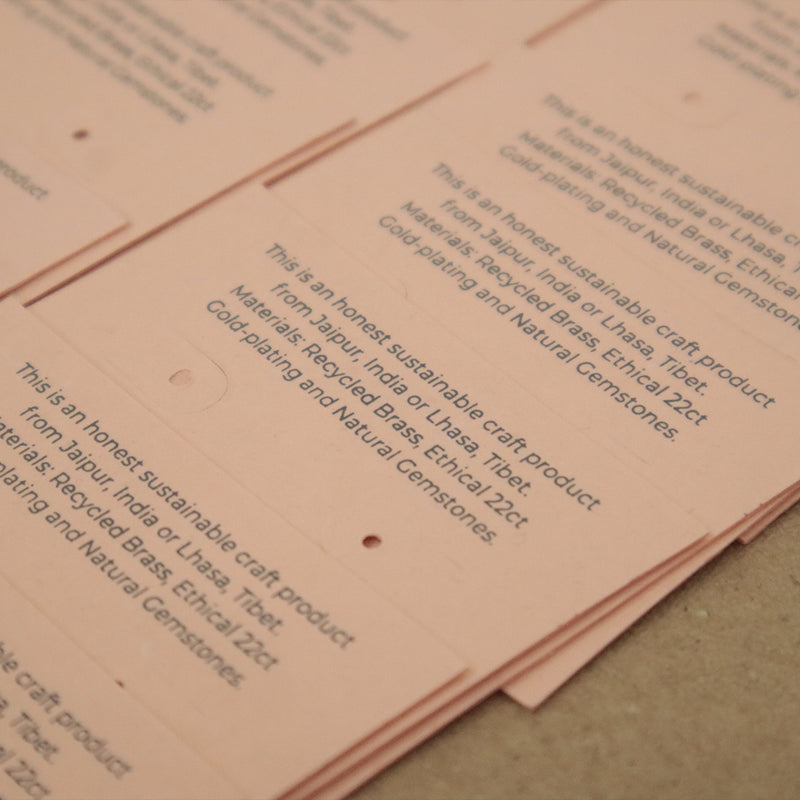 This is an honest sustainable craft product
from Jaipur, India or Lhasa, Tibet.
Materials: Recycled Brass, Ethical 22ct
Gold-plating and Natural Gemstones.
This is an honest sustainable craft product
from Jaipur, India or Lhasa, Tibet.
Materials: Recycled Brass, Ethical 22ct
Gold-plating and Natural Gemstones.
This is an honest sustainable craft product
from Jaipur, India or Lhasa, Tibet.
Recycled Brass, Ethical 22ct
and Natural Gemstones.
This is an honest sustainable
from Jaipur, India or Lhasa,
Materials: Recycled Brass, Ethical
Gold-plating and Natural
craft product
Tibet.
22ct
craft product
Tibet.
Ethical 22ct
Gemstones.
product
Gold-plating